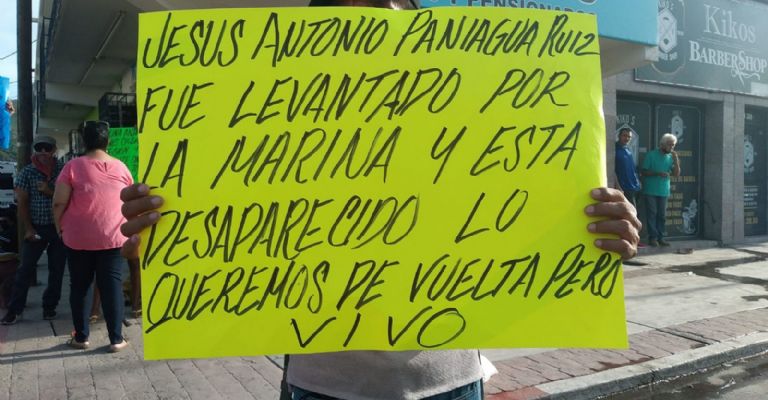 Y PENSIONADO
Kikos
BARBERSHOP
JESUS ANTONIO PANIAGUA RUIZ
FUE LEVANTADO POR
LA MARINA Y ESTA
DESAPARECIDO LO
QUEREMOS DE VUELTA PERO
VIVO